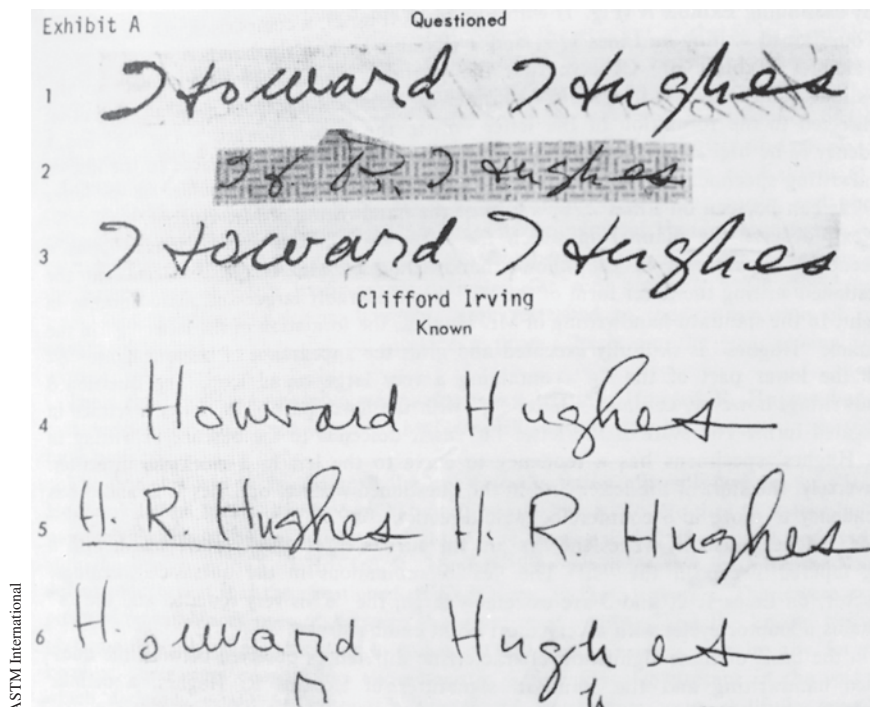 Exhibit A
Questioned
1 Howard Hughes
2 H. R. Hughes
3 Howard Hughes
Clifford Irving
Known
4 Howard Hughes
5 H. R. Hughes H. R. Hughes
6 Howard Hughes
ASTM International